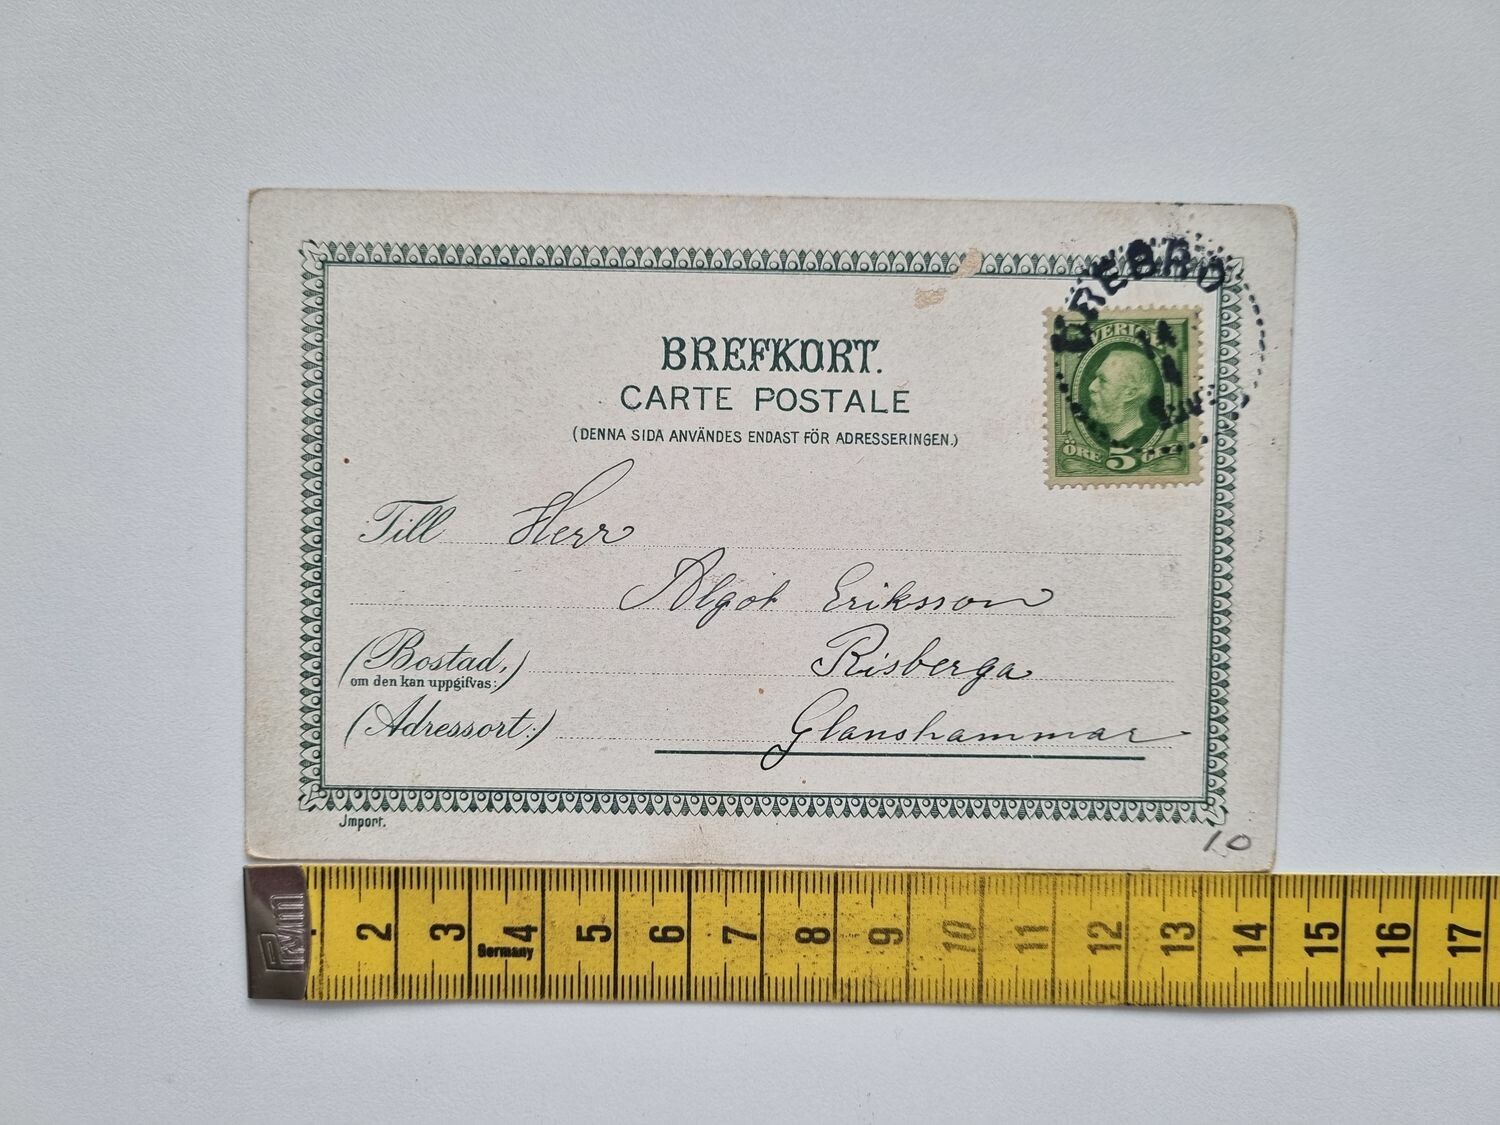 BREFKORT.
CARTE POSTALE
(DENNA SIDA ANVÄNDES ENDAST FÖR ADRESSERINGEN.)
ÖREBRO
14
SVERIGE
ÖRE 5 ÖRE
Till Herr
Algot Eriksson
(Bostad,) Risberga
om den kan uppgifvas:
(Adressort:) Glanshammar
Import.
10
Prym
2 3 4 5 6 7 8 9 10 11 12 13 14 15 16 17
Germany